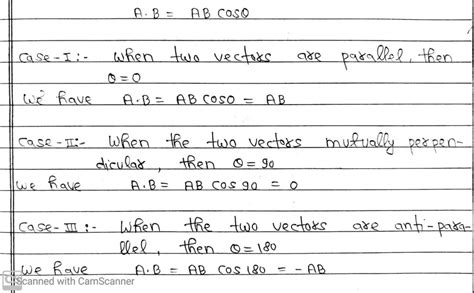 A.B = AB cosθ
Case-I:- When two vectors are parallel, then
θ=0
We have A.B = AB cos0 = AB
Case-II:- When the two vectors mutually perpen-
dicular, then θ=90
We have A.B = AB cos 90 = 0
Case-III:- When the two vectors are anti-para-
llel, then θ=180
We have A.B = AB cos 180 = -AB
CS Scanned with CamScanner